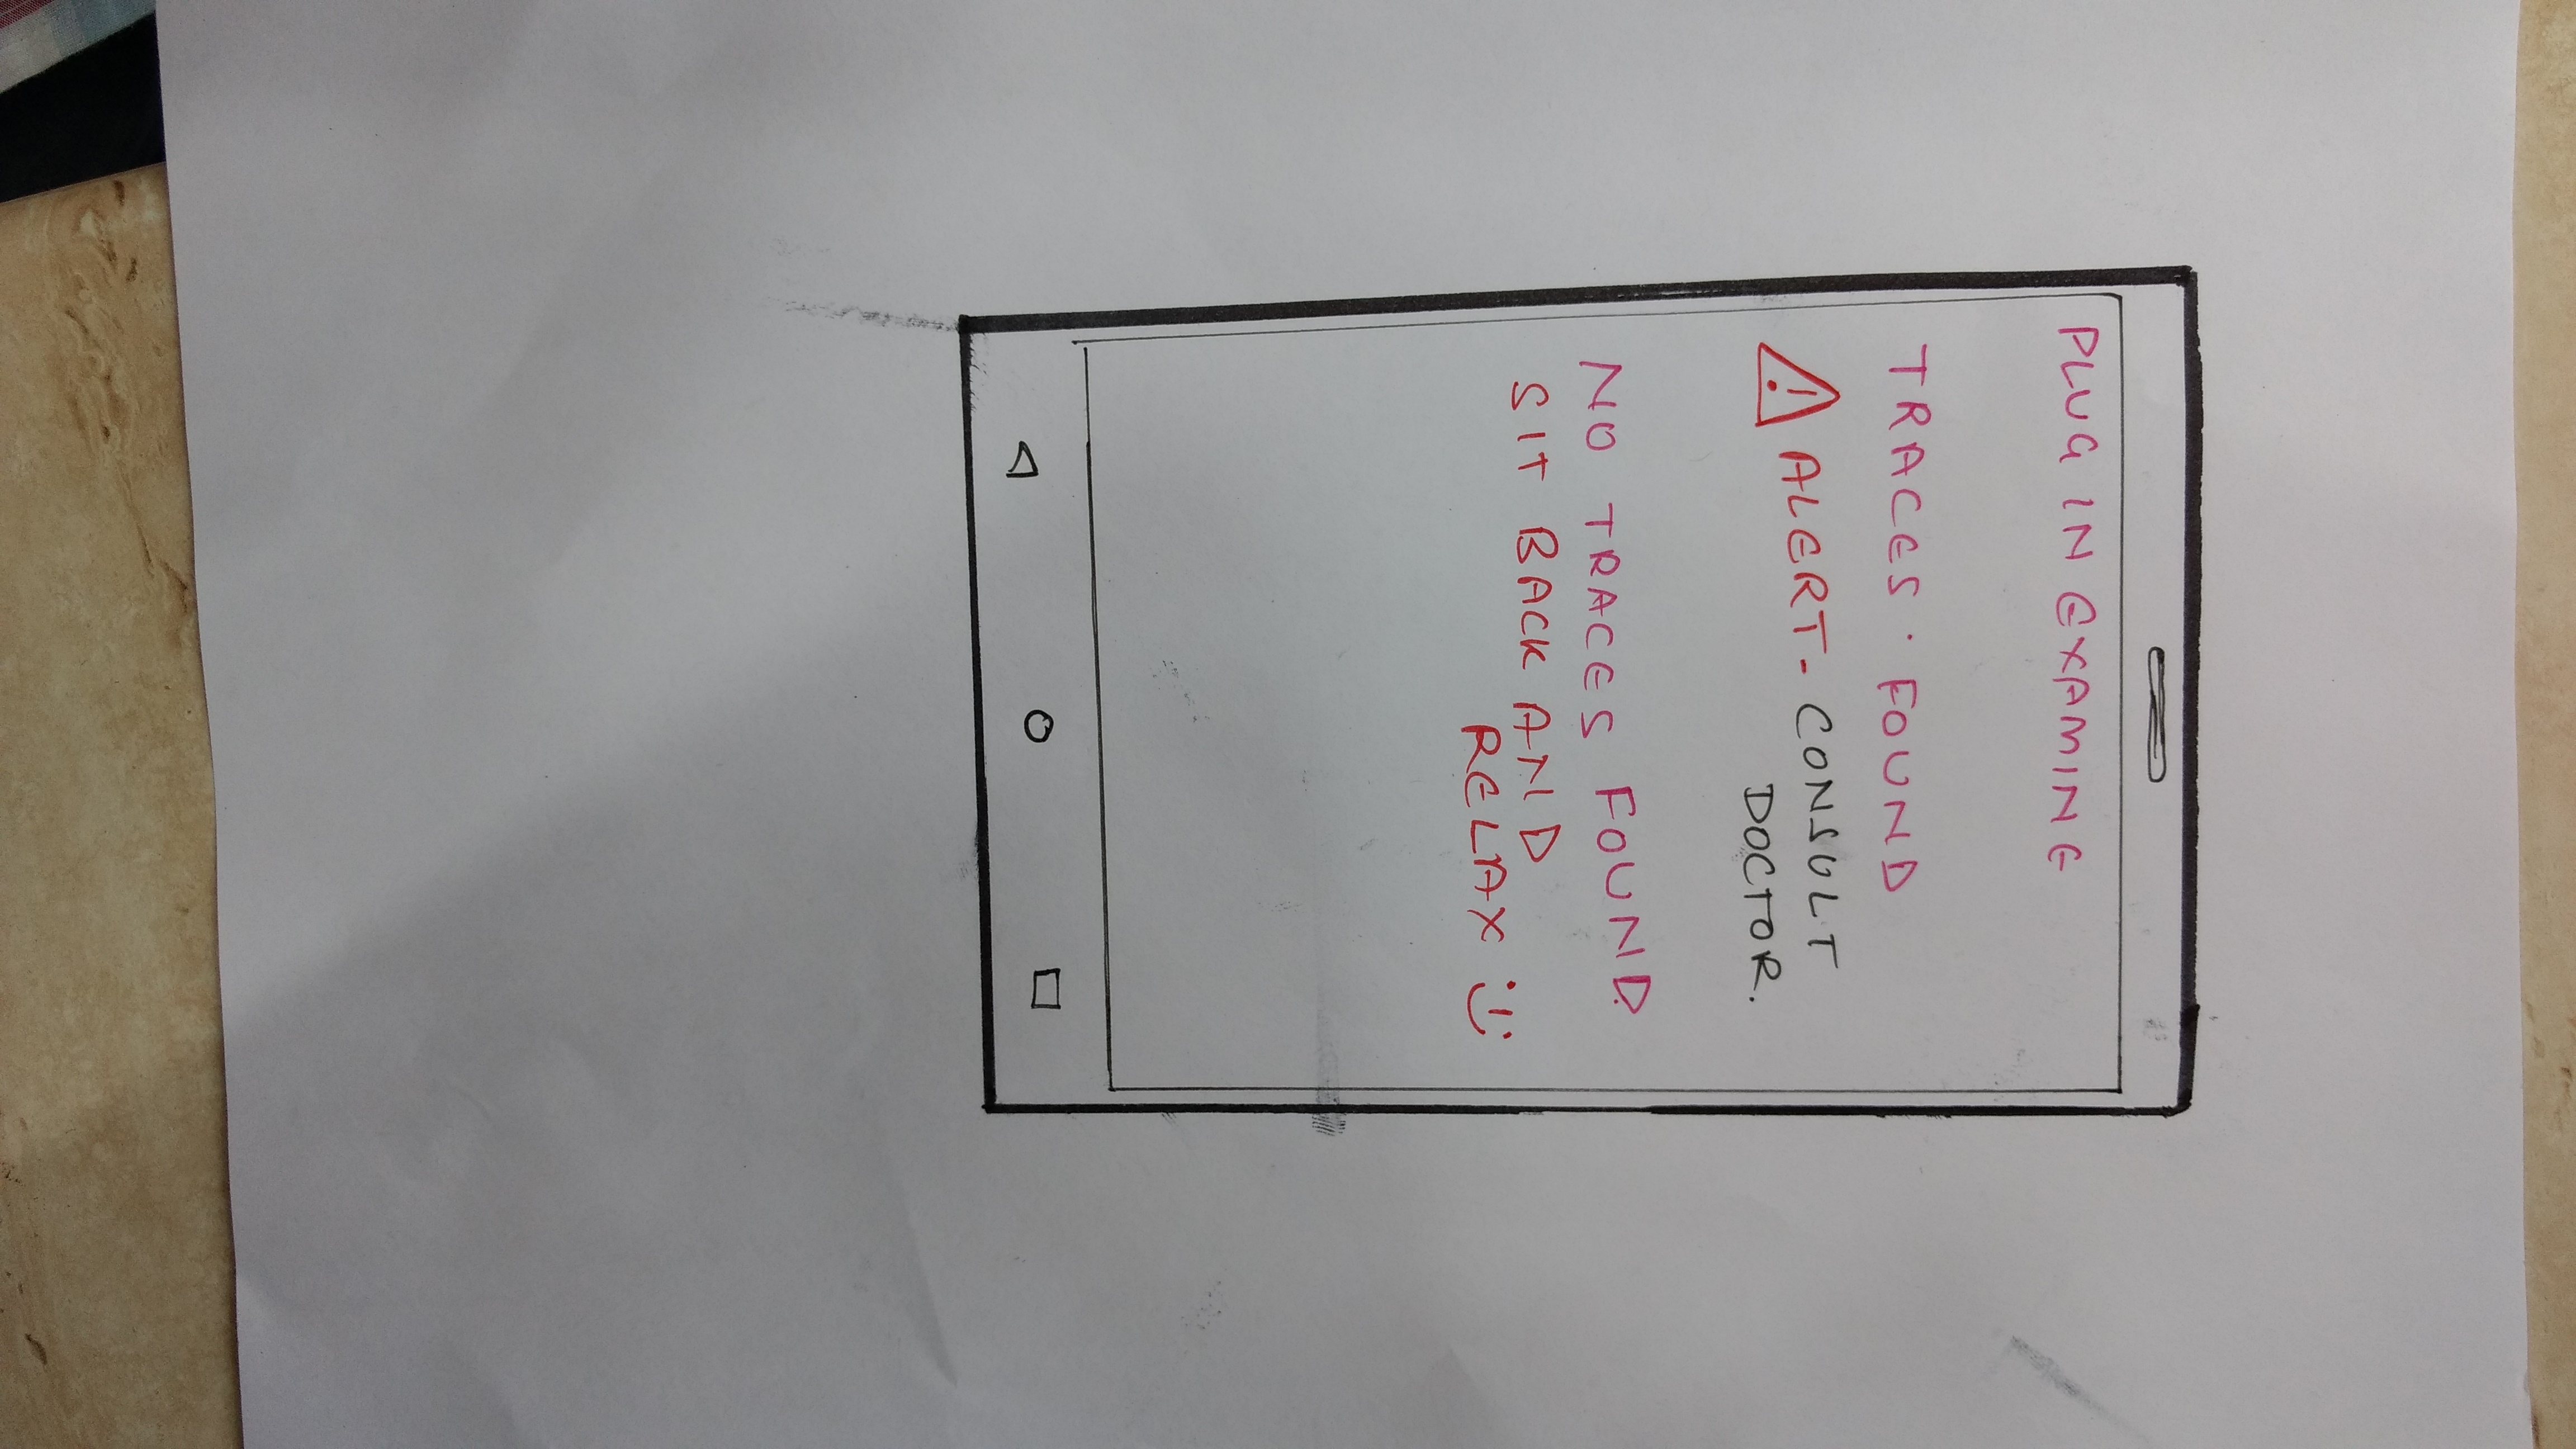 PLUG IN EXAMINE
TRACES · FOUND
ALERT- CONSULT
DOCTOR.
NO TRACES FOUND.
SIT BACK AND
RELAX